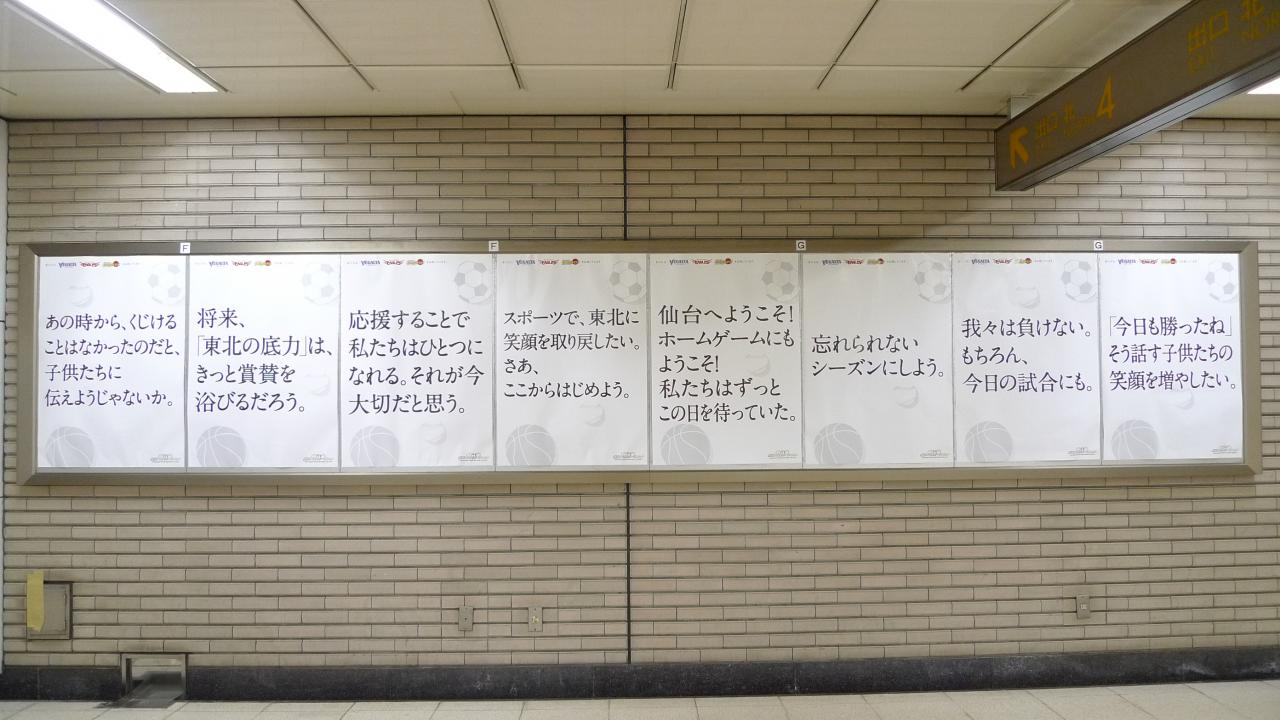 F
F
G
G
VEGALTA
EAGLES
あの時から、くじける
ことはなかったのだと、
子供たちに
伝えようじゃないか。
VEGALTA
EAGLES
将来、
「東北の底力」は、
きっと賞賛を
浴びるだろう。
VEGALTA
EAGLES
応援することで
私たちはひとつに
なれる。それが今
大切だと思う。
VEGALTA
EAGLES
スポーツで、東北に
笑顔を取り戻したい。
さあ、
ここからはじめよう。
VEGALTA
EAGLES
仙台へようこそ!
ホームゲームにも
ようこそ!
私たちはずっと
この日を待っていた。
VEGALTA
EAGLES
忘れられない
シーズンにしよう。
VEGALTA
EAGLES
我々は負けない。
もちろん、
今日の試合にも。
VEGALTA
EAGLES
「今日も勝ったね」
そう話す子供たちの
笑顔を増やしたい。
出口 北 4
出口 北